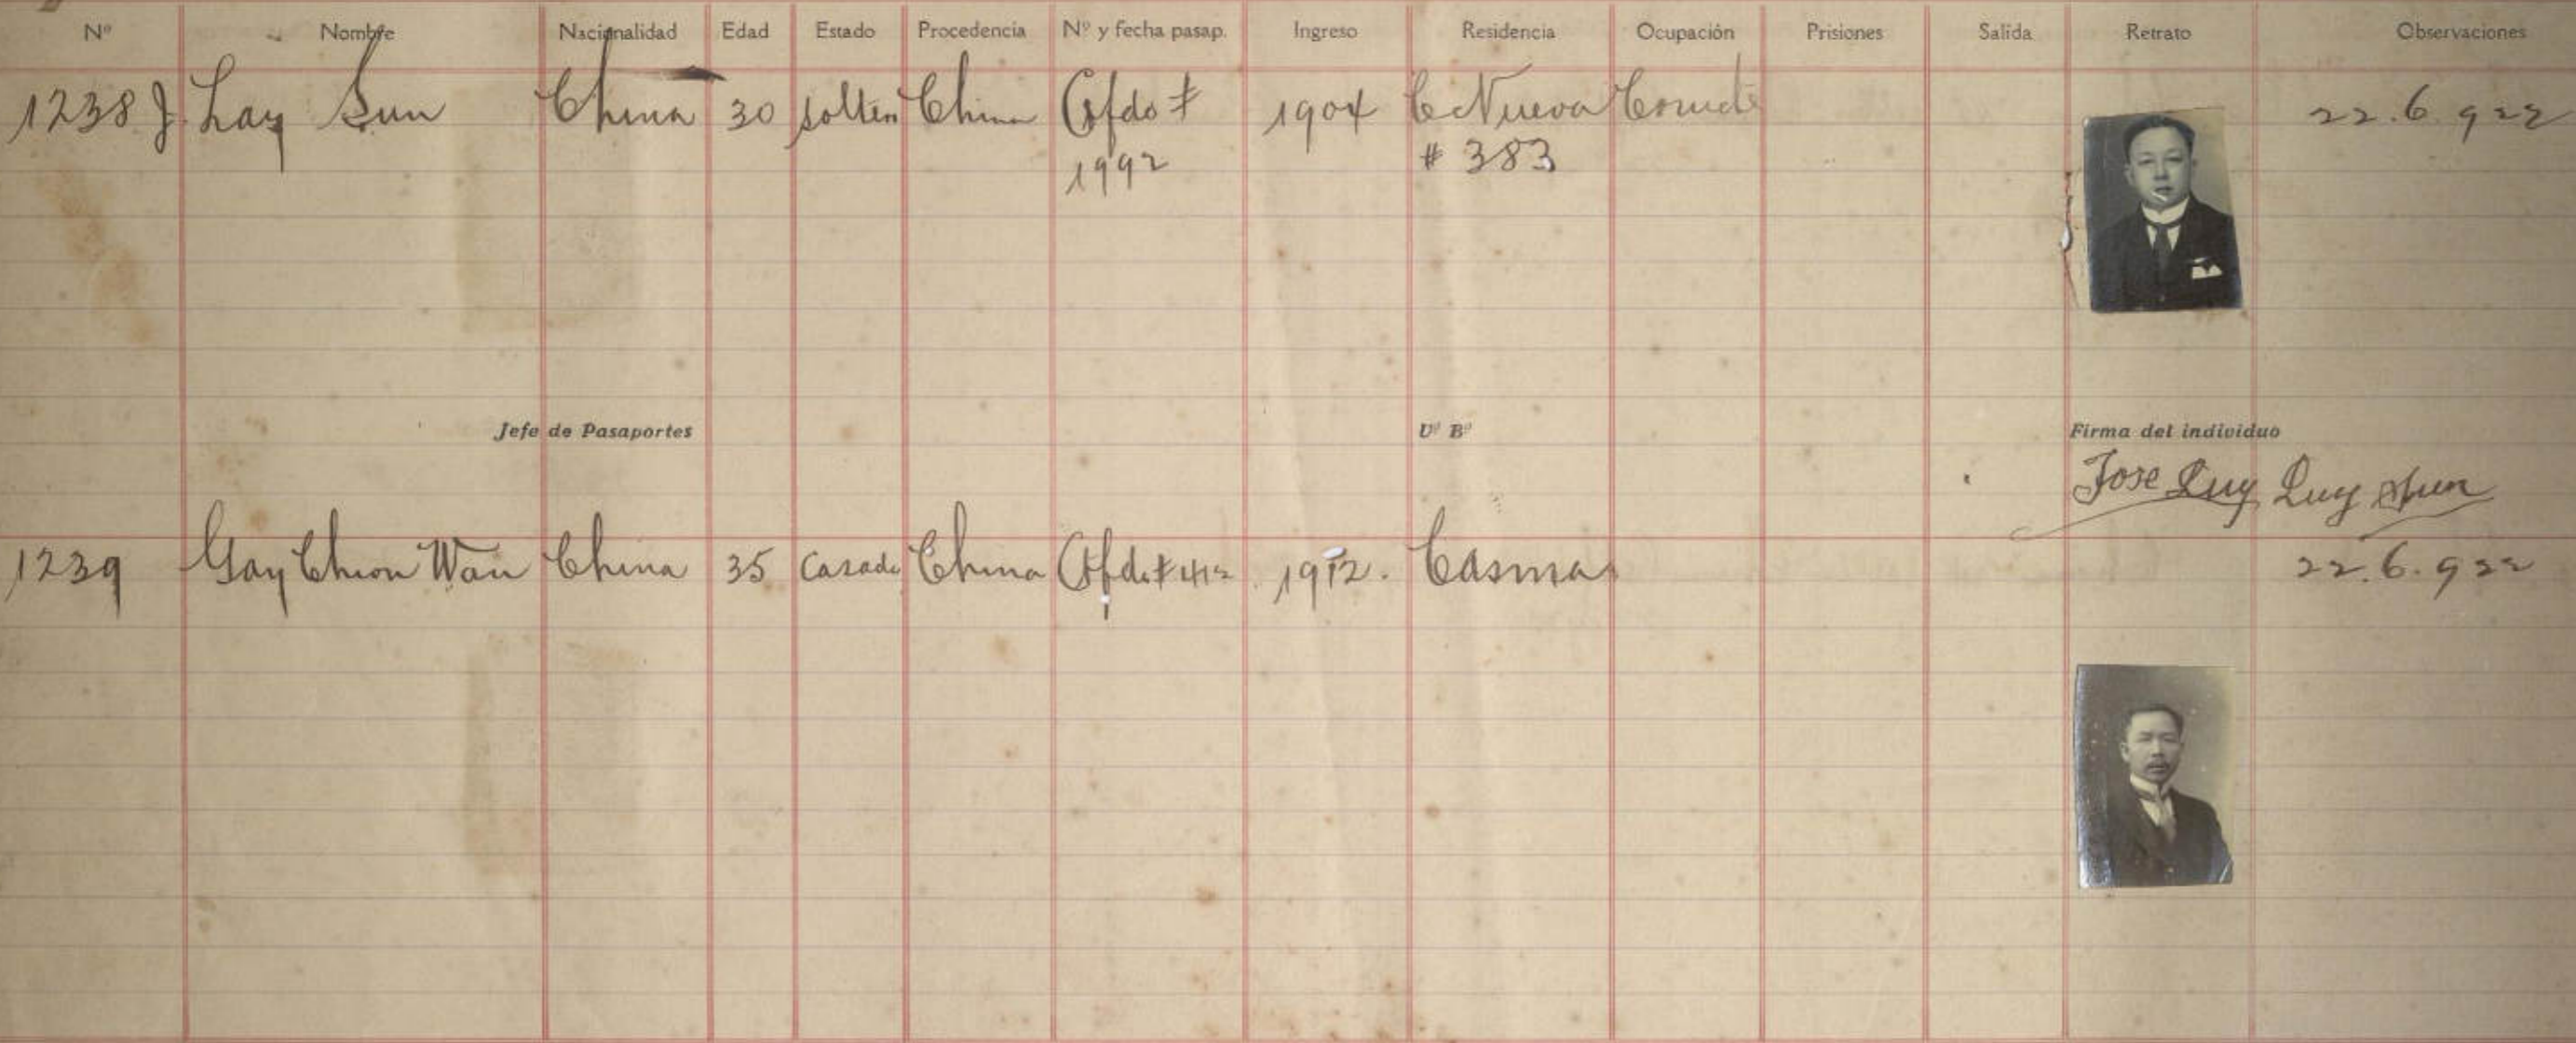 Nº Nombre Nacionalidad Edad Estado Procedencia Nº y fecha pasap. Ingreso Residencia Ocupación Prisiones Salida Retrato Observaciones
1238 J. Lay Sun China 30 solten China Cfdo # 1904 C Nueva 22.6.922
1992 # 383
Jefe de Pasaportes Vº Bº Firma del individuo
Jose Luy Luy Shun
1239 Gay Chion Wan China 35 Casado China Cfdo # 412 1912. Casma 22.6.922